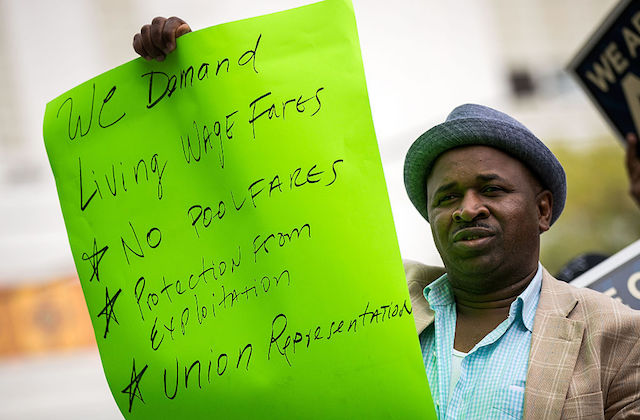 We Demand
Living Wage Fares
* No POOLFARES
* Protection From
Exploitation
* Union Representation
WE A